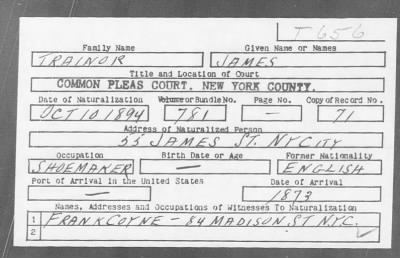 T656
Family Name Given Name or Names
TRAINOR JAMES
Title and Location of Court
COMMON PLEAS COURT, NEW YORK COUNTY.
Date of Naturalization Volume or Bundle No. Page No. Copy of Record No.
OCT 10 1894 781 — 71
Address of Naturalized Person
55 JAMES ST. NYCITY
Occupation Birth Date or Age Former Nationality
SHOEMAKER — ENGLISH
Port of Arrival in the United States Date of Arrival
— 1873
Names, Addresses and Occupations of Witnesses To Naturalization
1 FRANK COYNE – 84 MADISON, ST N.Y.C.
2